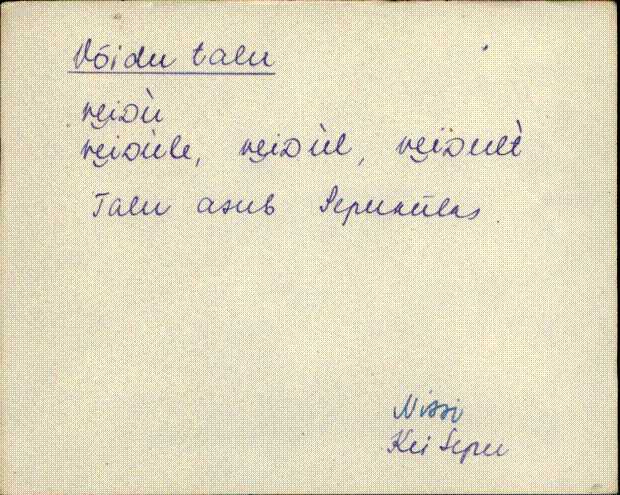 Võidu talu
ve̮iᴅù
ve̮iᴅùle, ve̮iᴅùl, ve̮iᴅult̀
Talu asub Sepukülas.
Nissi
Kei Sepu